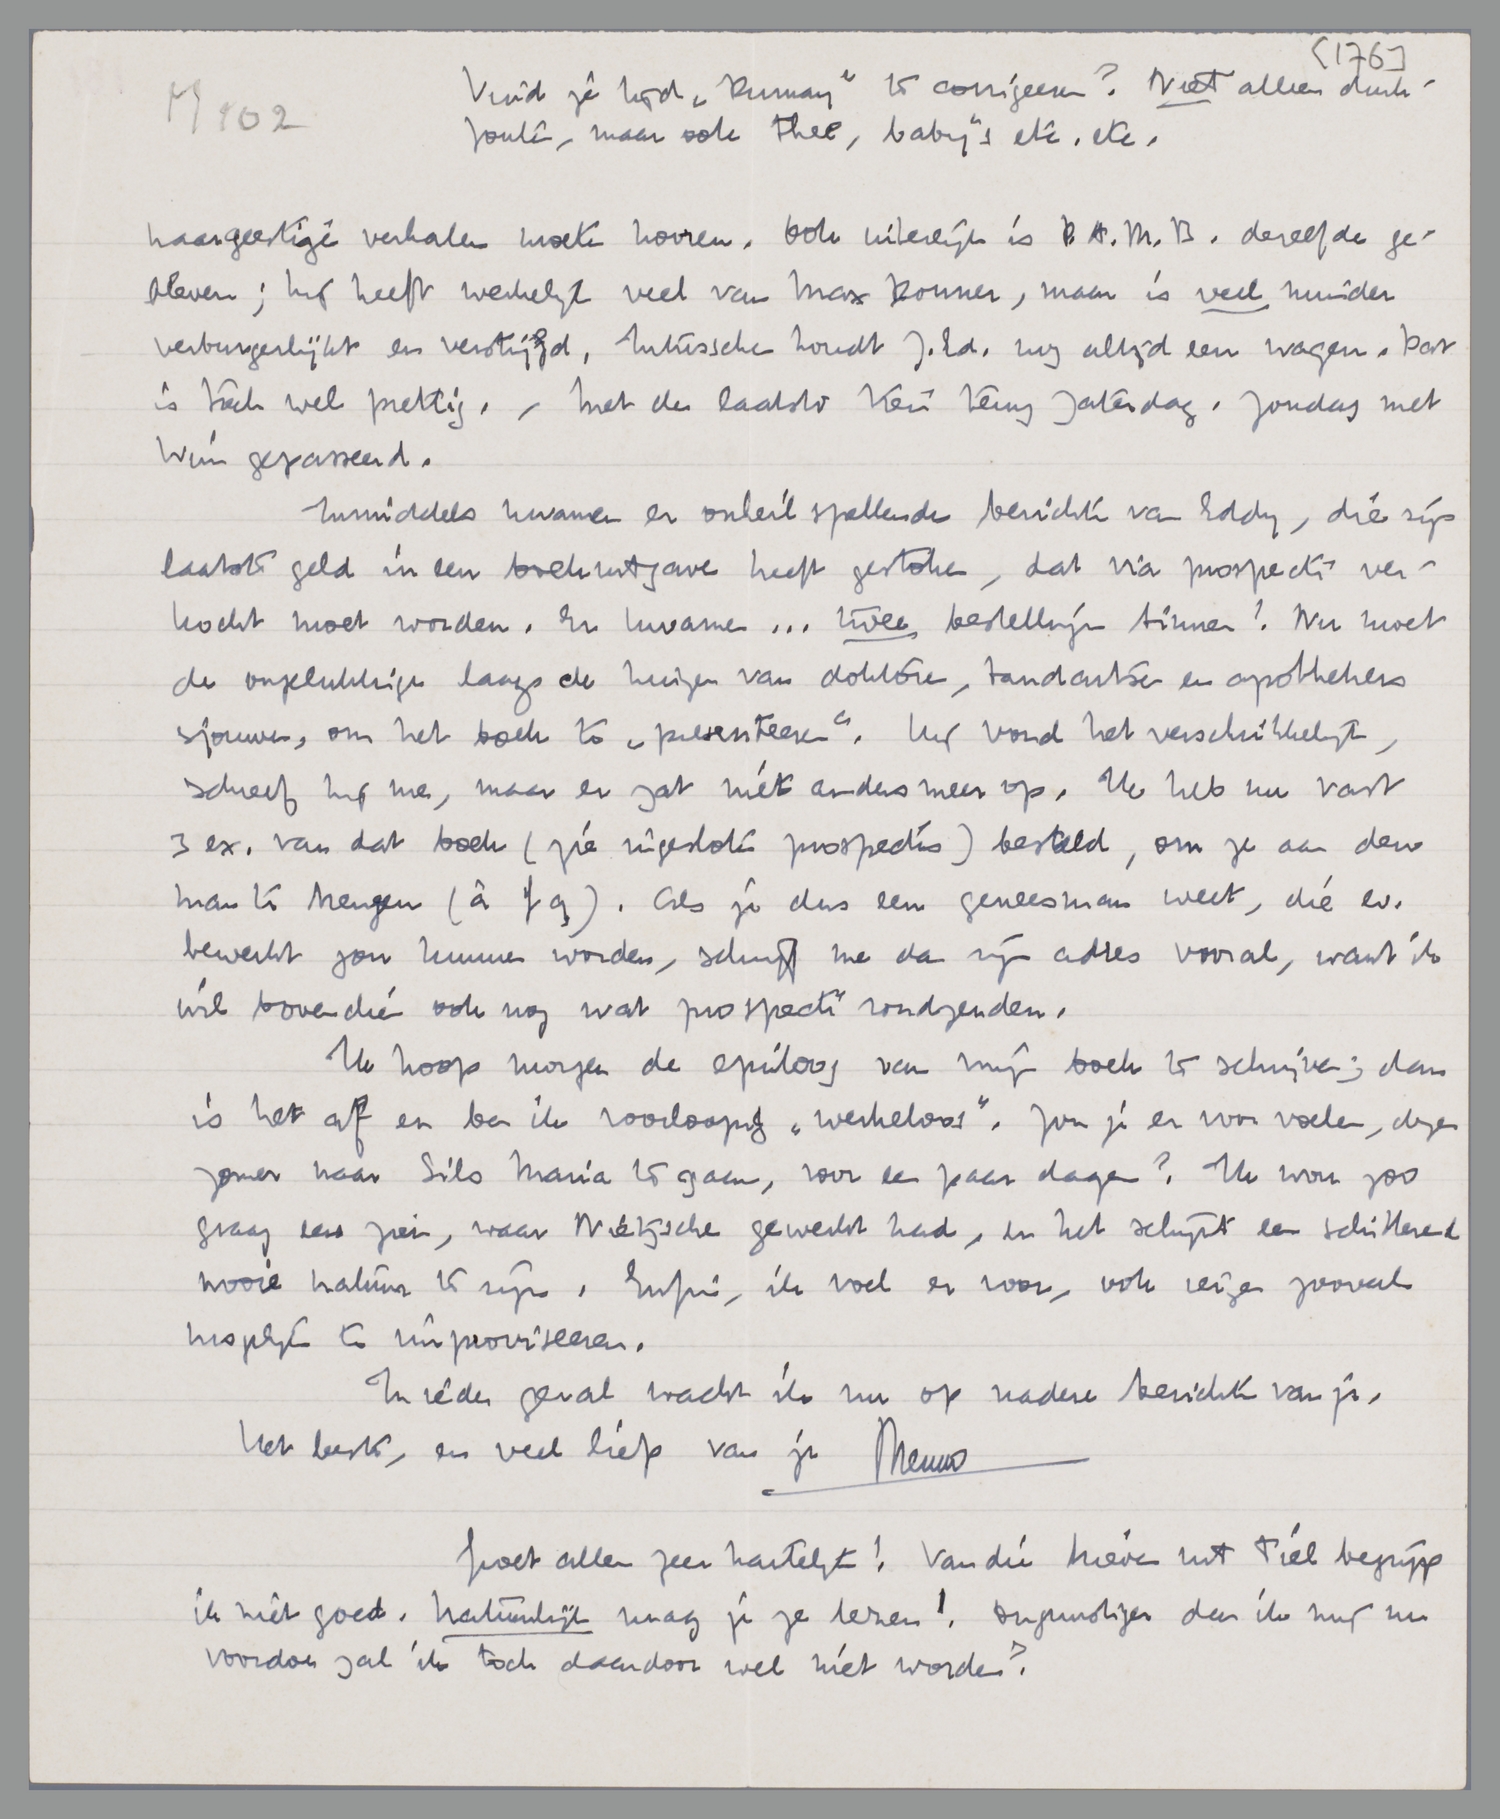 [176]
M 102
Vind je tijd „Dumay" te corrigeeren? Niet alleen druk-
fouten, maar ook thee, baby's etc. etc.
naargeestige verhalen moeten hooren. Ook uiterlijk is A.M.B. dezelfde ge-
bleven; hij heeft werkelijk veel van Max Donner, maar is veel minder
verburgerlijkt en verstijfd, Intusschen houdt J.Ed. nog altijd een wagen. Dat
is toch wel prettig. - Met de laatste trein terug Zaterdag. Zondag met
Wim gepasseerd.
Inmiddels kwamen er onheilspellende berichten van Eddy, die zijn
laatste geld in een boekuitgave heeft gestoken, dat via prospecti ver-
kocht moet worden. Er kwamen ... twee bestellingen binnen! Nu moet
de ongelukkige langs de huizen van doktoren, tandartsen en apothekers
sjouwen, om het boek te „presenteeren". Hij vond het verschrikkelijk,
schreef hij me, maar er zat niets anders meer op. Ik heb nu vast
3 ex. van dat boek (zie ingesloten prospectus) besteld, om ze aan den
man te brengen (à f 9). Als je dus een geneesman weet, die ev.
bewerkt zou kunnen worden, schrijf me dan zijn adres vooral, want ik
wil bovendien ook nog wat prospecti rondzenden.
Ik hoop morgen de epiloog van mijn boek te schrijven; dan
is het af en ben ik voorloopig „werkeloos". Zou je er voor voelen, dezen
zomer naar Sils Maria te gaan, voor een paar dagen? Ik wou zoo
graag eens zien, waar Nietzsche gewerkt had, en het schijnt een schitterend
mooie natuur te zijn. Enfin, ik voel er voor, ook reizen zooveel
mogelijk te improviseeren.
In ieder geval wacht ik nu op nadere berichten van je.
Het beste, en veel liefs van je Menno
Groet allen zeer hartelijk! Van die brieven uit Tiel begrijp
ik niet goed. Natuurlijk mag je ze lezen! Ongunstiger dan ik mij nu
voordoe zal ik toch daardoor wel niet worden?